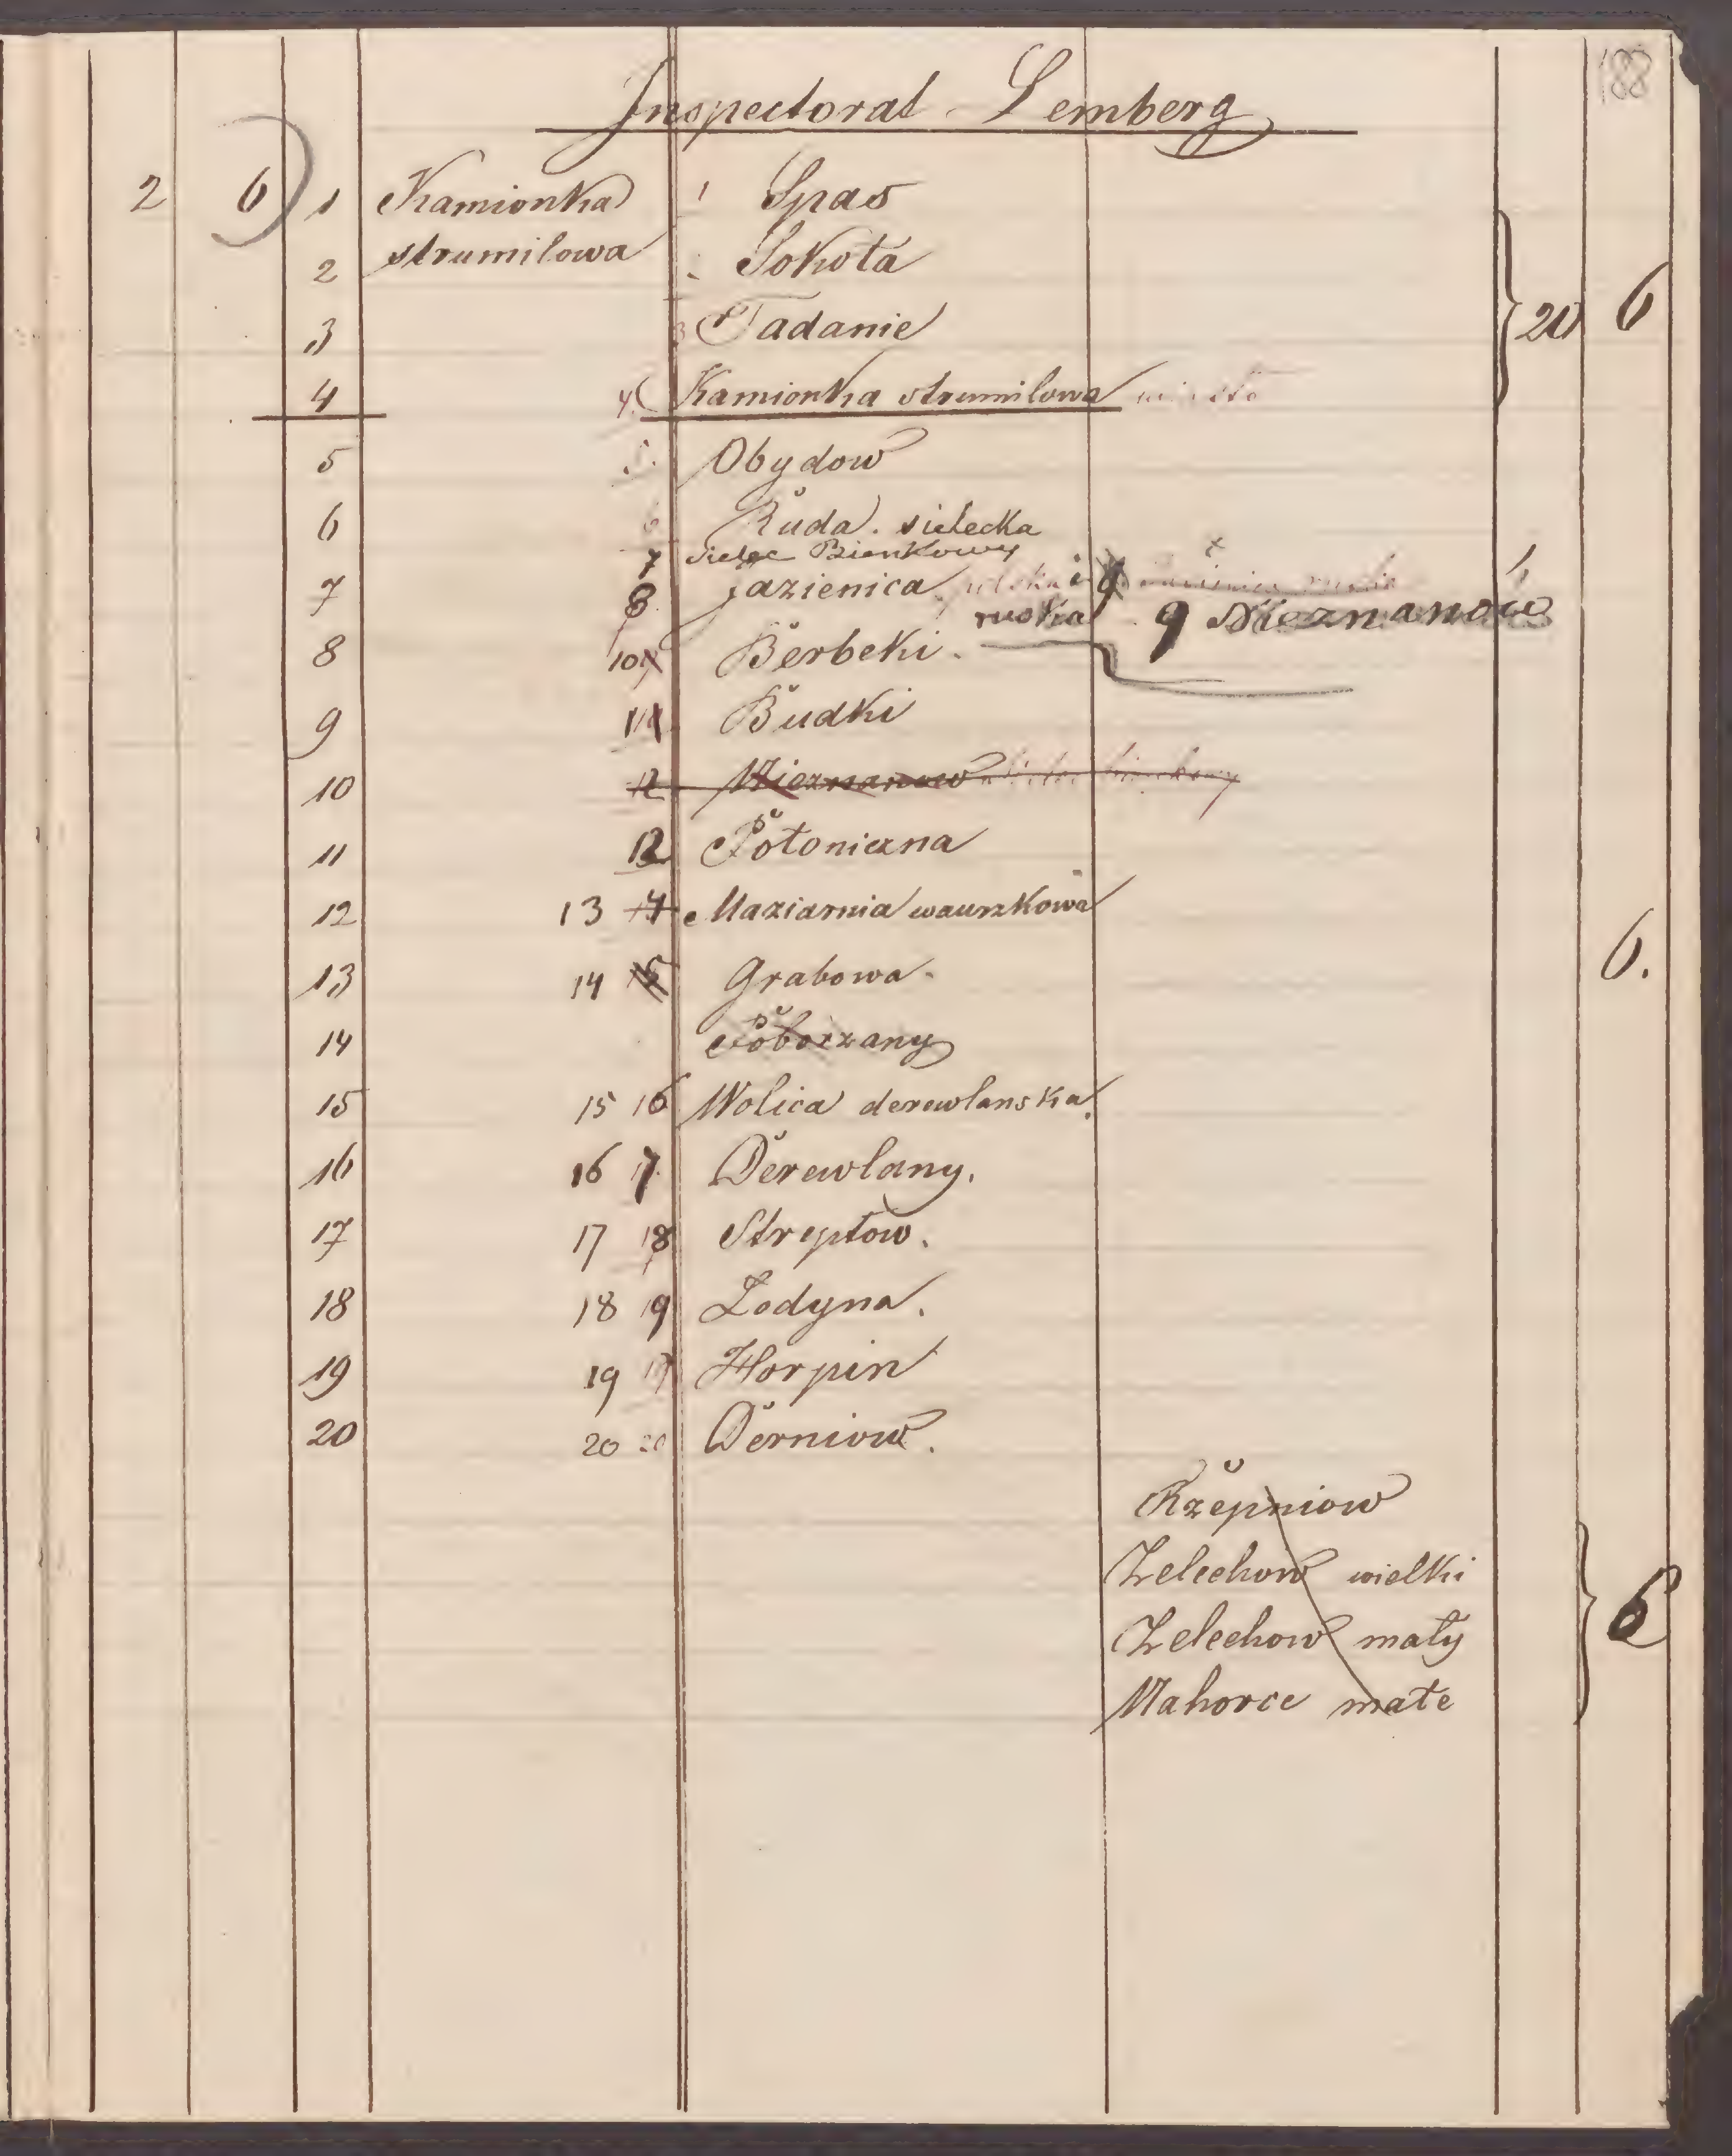 188
Inspectorat Lemberg
2 6 1 Kamionka 1 Spas
2 strumilowa Sokoła 20 6
3 3 Tadanie
4 4 Kamionka strumilowa miasto
5 5. Obydow
6 6 Ruda sielecka
7 Sielec Bienkowy
7 8 Jazienica polska i
ruska 9 Nieznanow
8 10 Berbeki.
9 11 Budki
10 12 Nieznanow
11 12 Połoniczna
12 13 14 Maziarnia wauzkowa 6.
13 14 15 Grabowa.
14 Poborzany
15 15 16 Wolica derewlanska.
16 16 17 Derewlany.
17 17 18 Streptow.
18 18 19 Lodyna.
19 19 Horpin
20 20 20 Derniow.
Rzepniow
Zelechow wielki 6
Zelechow mały
Nahorce małe